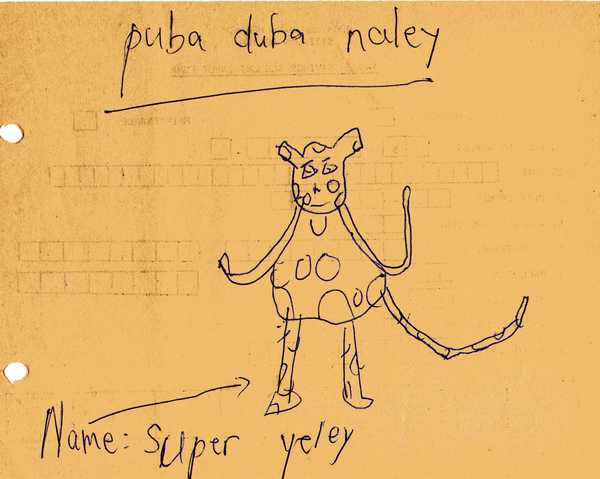 puba duba naley
Name: super yeley